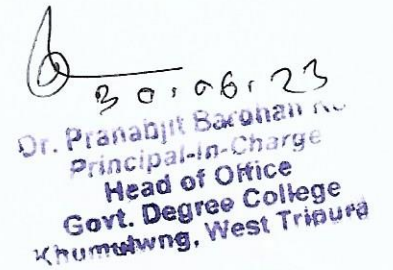 30.06.23
Dr. Pranabjit
Principal-in-Charge
Head of Office
Govt. Degree College
Khumulwng, West Tripura